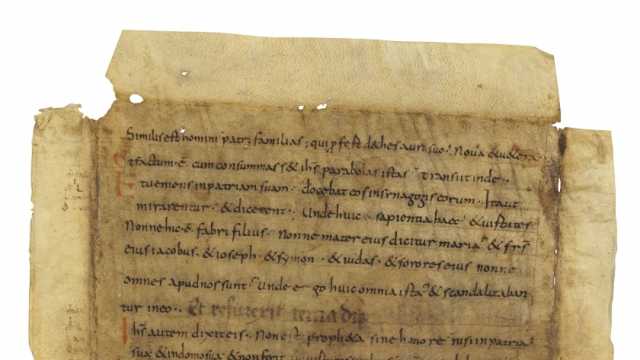 Similis est homini patri familias; qui p̄fert de thes auro suo. Noua & uetera.
Et factum ē. cum consummass& ihs parabolas istas transiit inde.
Et ueniens in patriam suam. docebat eos in synagogis eorum. Ita ut
mirarentur. & dicerent. Unde huic sapientia haec & uirtutes
Nonne hic ē fabri filius. Nonne mater eius dicitur maria. & frs
eius iacobus. & ioseph. & symon. & iudas. & sorores eius nonne
omnes apud nos sunt. Unde ergo huic omnia ista. & scandalizaban
tur in eo.
Ihs autem dixit eis. Non est propheta sine honore nisi in patria
sua & in domo sua & non fecit